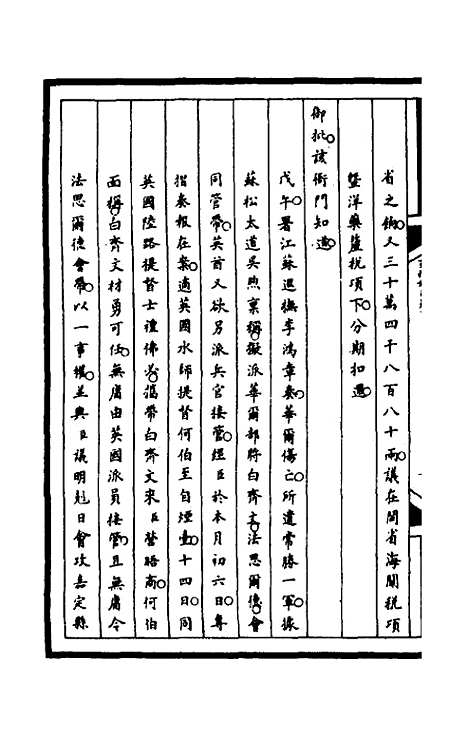 省之餉又三十萬四千八百八十兩議在閩省海關稅項
暨洋藥釐稅項下分期扣還
御批該衙門知道
戊午署江蘇巡撫李鴻章奏華爾傷亡所遺常勝一軍據
蘇松太道吳煦稟稱擬派華爾部將白齊文法思爾德會
同管帶英酋又欲另派兵官接管經臣於本月初六日專
摺奏報在案適英國水師提督何伯至自煙臺十四日同
英國陸路提督士禮佛必揭帶白齊文來臣營晤商何伯
面稱白齊文材勇可任無庸由英國派員接管且無庸令
法思爾德會帶以一事權並與臣議明尅日會攻嘉定縣